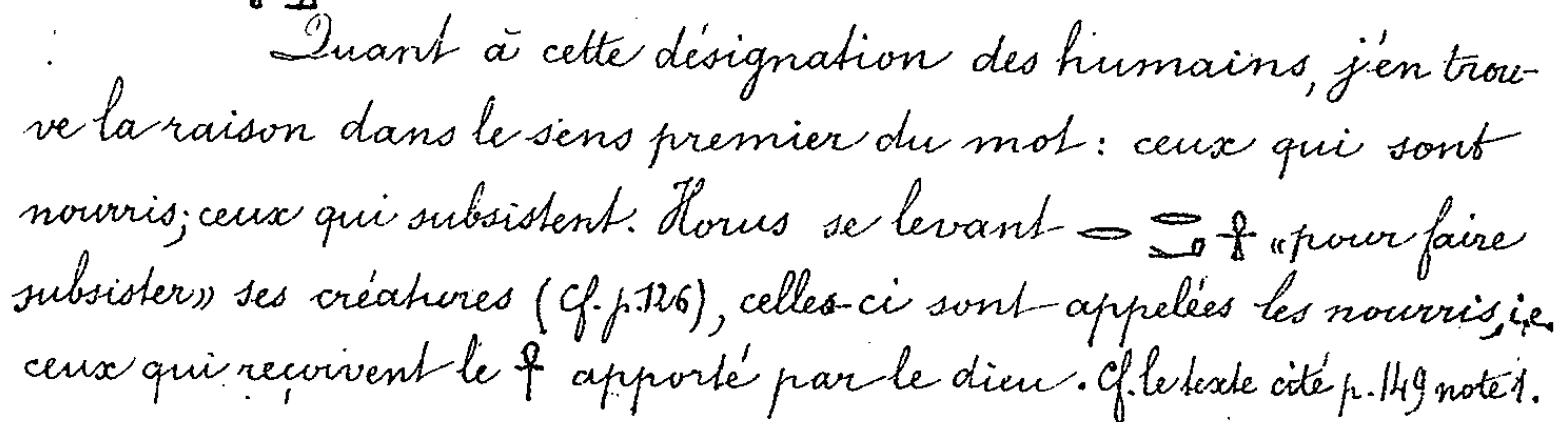 Quant à cette désignation des humains, j'en trou-
ve la raison dans le sens premier du mot : ceux qui sont
nourris; ceux qui subsistent. Horus se levant 𓂋 𓂋𓂞 𓋹 « pour faire
subsister » ses créatures (Cf. p. 126), celles-ci sont appelées les nourris, i.e.
ceux qui reçoivent le 𓋹 apporté par le dieu. Cf. le texte cité p. 149 note 1.